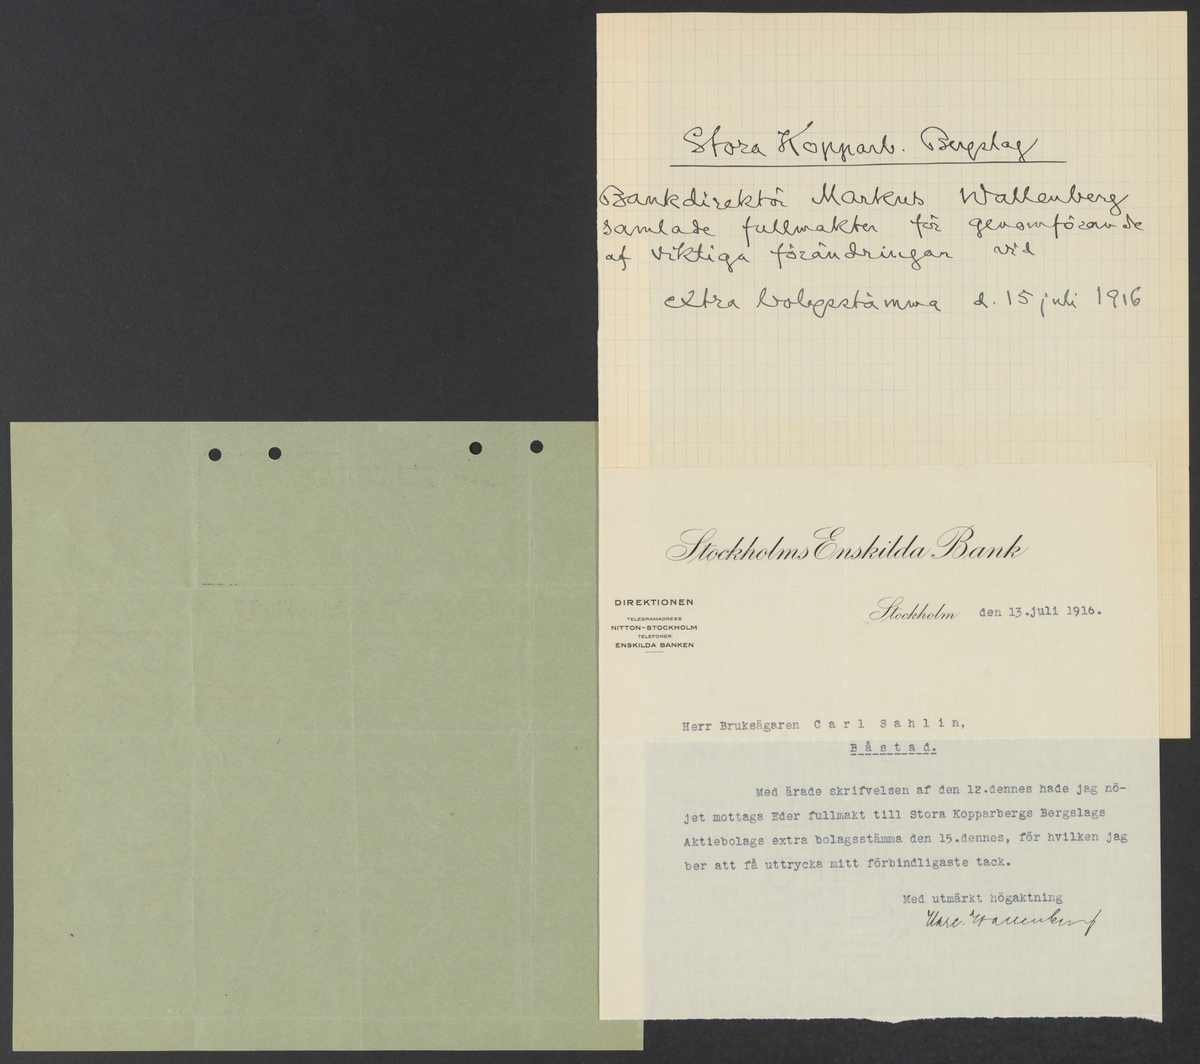 Stora Kopparb. Bergslag
Bankdirektör Markus Wallenberg
samlade fullmakter för genomförande
af viktiga förändringar vid
extra bolagsstämma d. 15 juli 1916
Stockholms Enskilda Bank
DIREKTIONEN
TELEGRAMADRESS:
NITTON-STOCKHOLM
TELEFONER:
ENSKILDA BANKEN
Stockholm den 13.juli 1916.
Herr Bruksägaren Carl Sahlin,
Båstad.
Med ärade skrifvelsen af den 12.dennes hade jag nö-
jet mottaga Eder fullmakt till Stora Kopparbergs Bergslags
Aktiebolags extra bolagsstämma den 15.dennes, för hvilken jag
ber att få uttrycka mitt förbindligaste tack.
Med utmärkt högaktning
Marc. Wallenberg